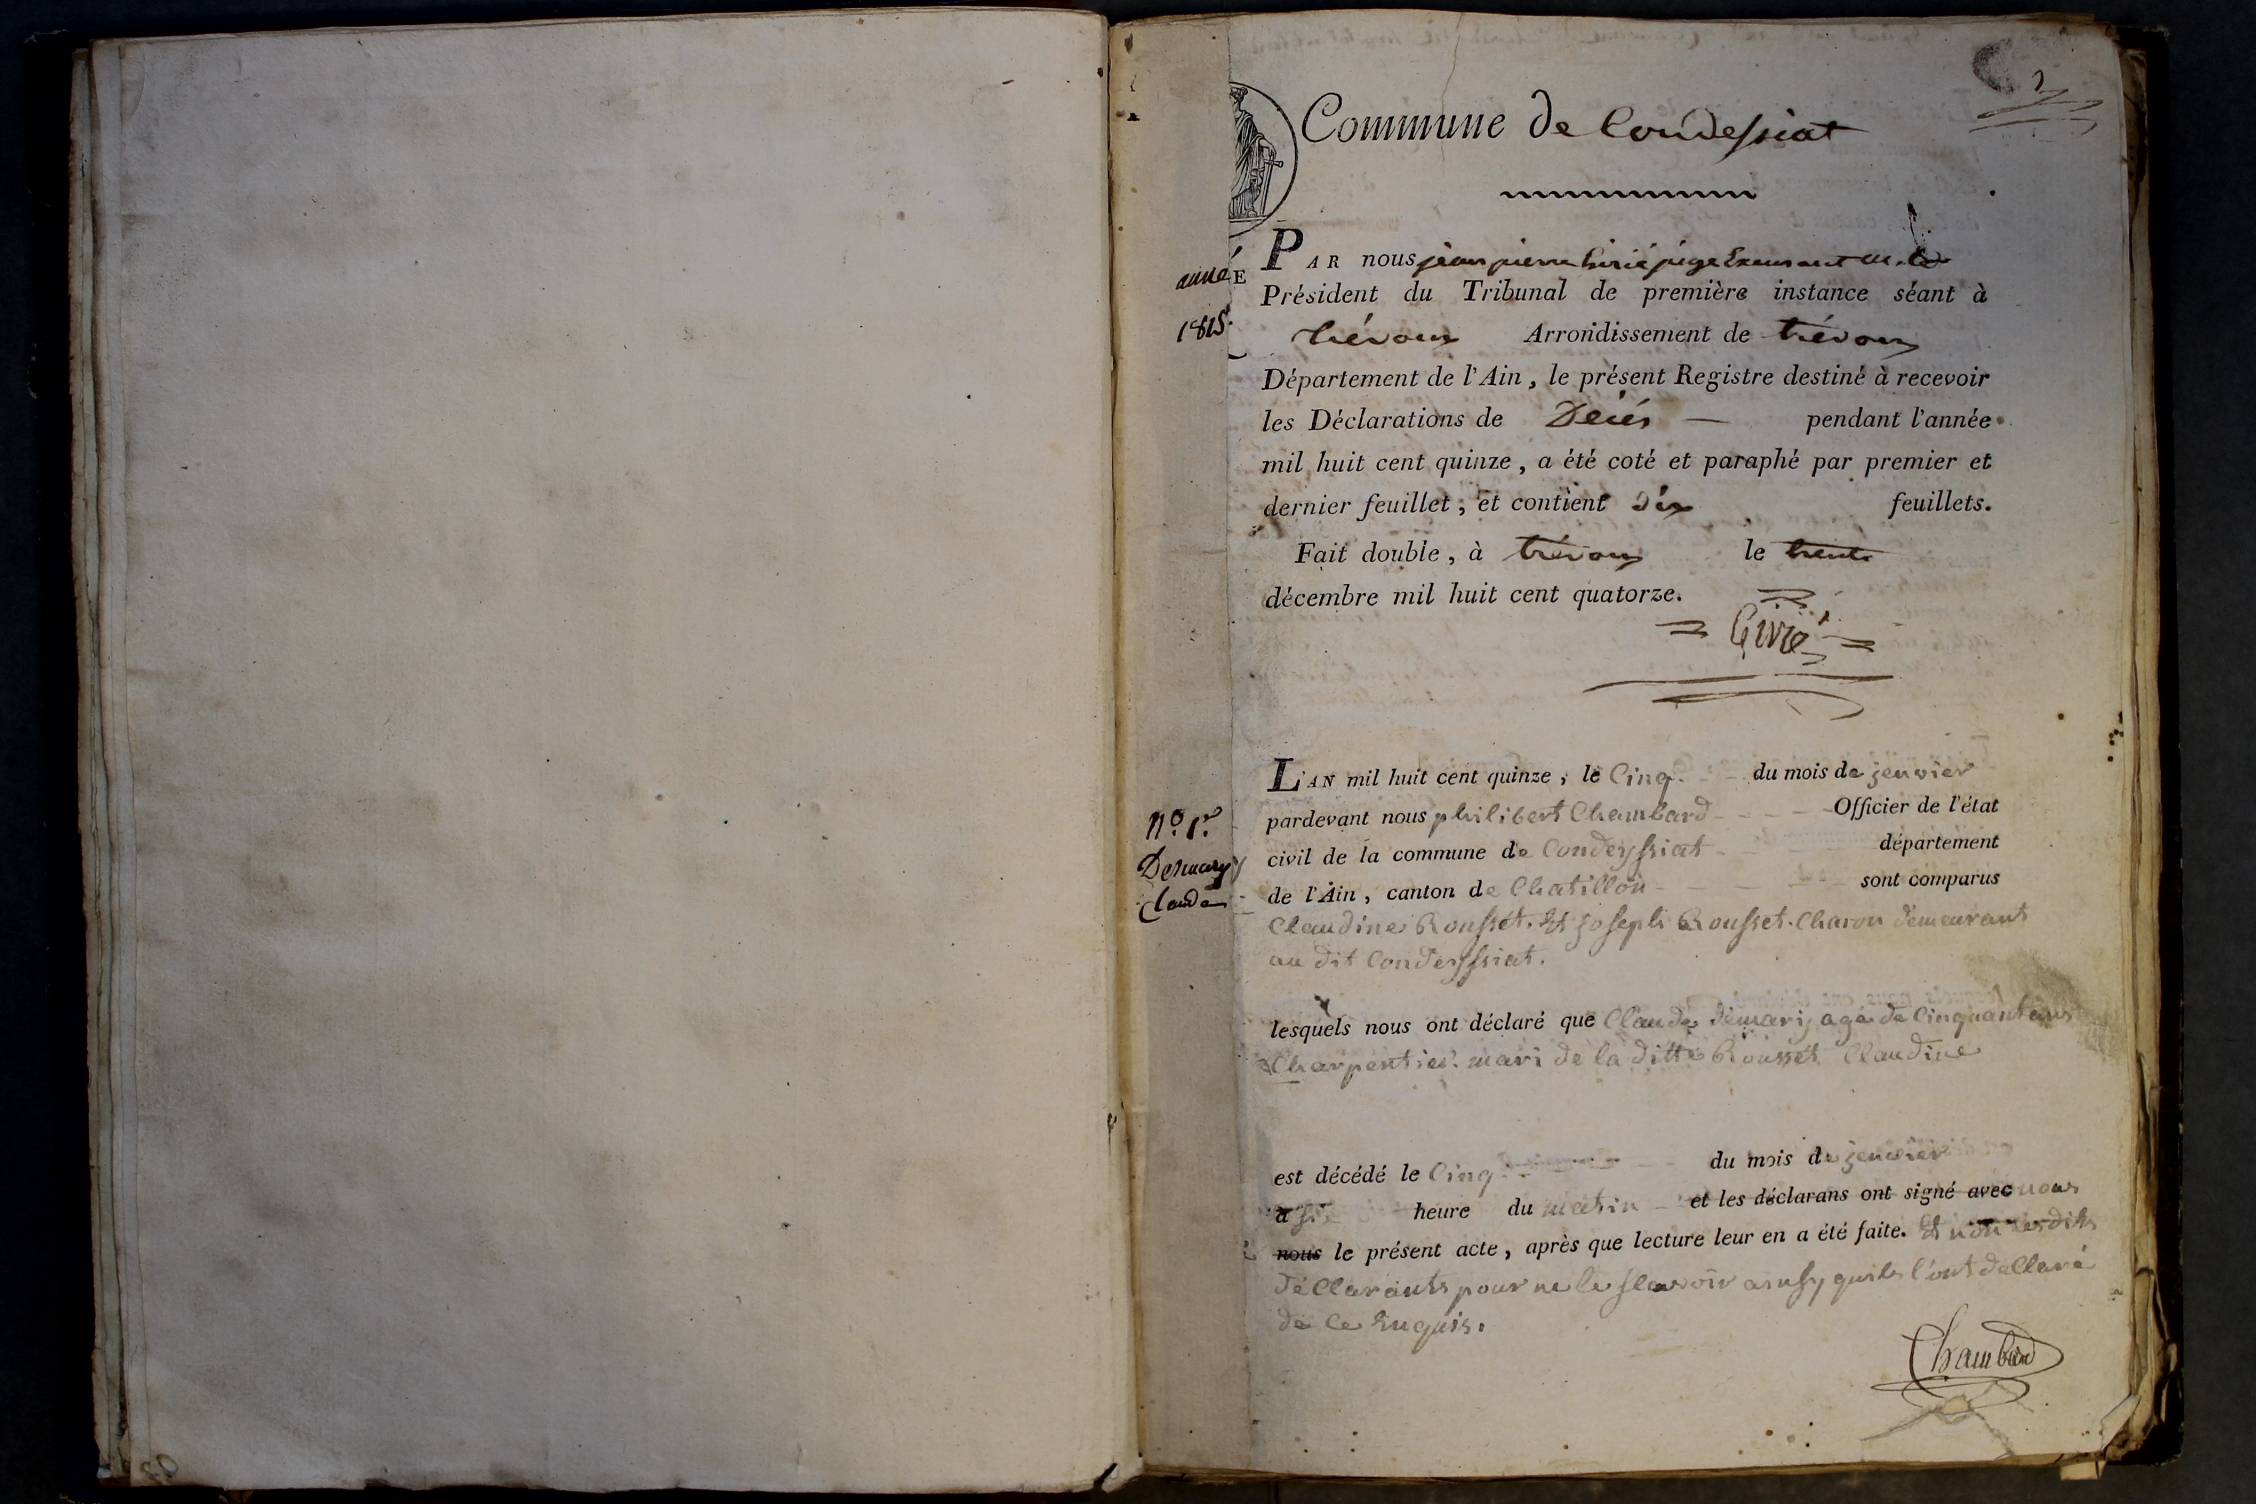 Commune de Condessiat
PAR nous jean pierre juge Exerceant
annéE
Président du Tribunal de première instance séant à
1815.
trévoux Arrondissement de trévoux
Département de l'Ain, le présent Registre destiné à recevoir
les Déclarations de Décés — pendant l'année
mil huit cent quinze, a été coté et paraphé par premier et
dernier feuillet; et contient dix feuillets.
Fait double, à trévoux le trente
décembre mil huit cent quatorze.
L'AN mil huit cent quinze, le Cinq du mois de jenvier
pardevant nous philibert Chambard Officier de l'état
N.º 1.er
civil de la commune de Condeyssiat département
Demary
de l'Ain, canton de Chatillon sont comparus
Claude
Claudine Rousset. Et joseph Rousset. Charon demeurant
au dit Condeyssiat.
lesquels nous ont déclaré que Claude demary agé de Cinquant ans
Charpentier. mari de la ditte Rousset Claudine
est décédé le Cinq du mois de jenvier
a heure du matin et les déclarans ont signé avec nous
nous le présent acte, après que lecture leur en a été faite. Et non lesdits
déClarants pour ne le sCavoir ainsy quils l'ont déClaré
de Ce Enquis.
Chambard